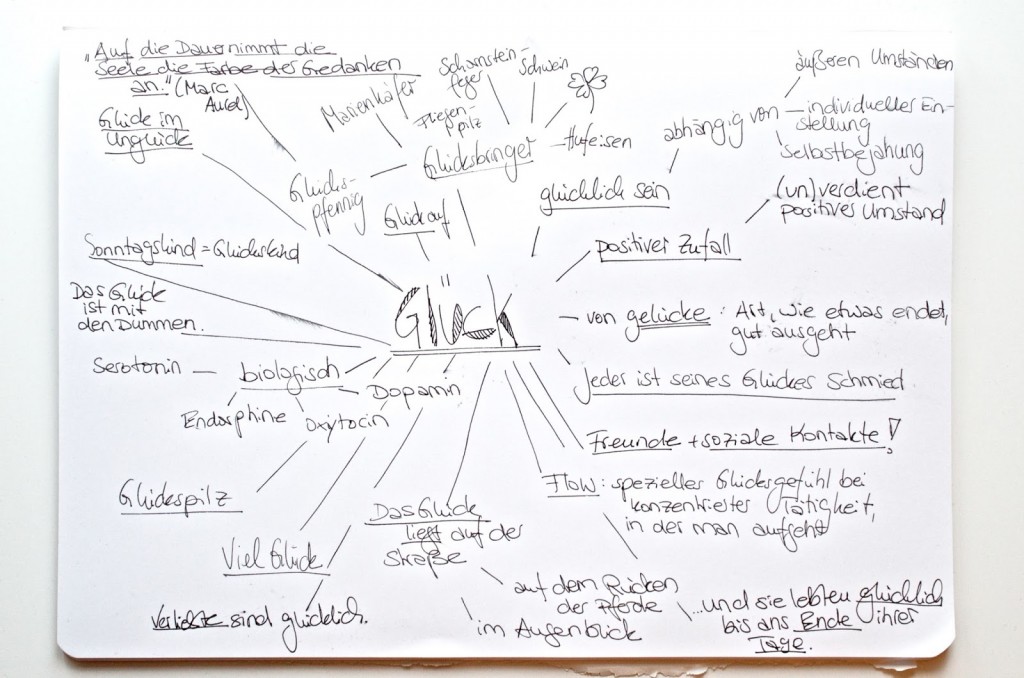 "Auf die Dauer nimmt die
Seele die Farbe der Gedanken
an." (Marc
Aurel)
Glück im
Unglück
Marienkäfer
Schornstein-
feger
Schwein
Fliegen-
pilz
Glücksbringer
Hufeisen
Glücks-
pfennig
Glück auf
glücklich sein
abhängig von
äußeren Umständen
individueller Ein-
stellung
Selbstbejahung
(un)verdient
positives Umstand
positiver Zufall
Sonntagskind = Glückskind
Das Glück
ist mit
den Dummen.
Glück
von gelücke: Art, wie etwas endet,
gut ausgeht
Jeder ist seines Glückes Schmied
Serotonin
biologisch
Dopamin
Endorphine
Oxytocin
Freunde + soziale Kontakte!
Flow: spezieller Glücksgefühl bei
konzentrierter Tätigkeit,
in der man aufgeht
Glückspilz
Das Glück
liegt auf der
Straße
Viel Glück
Verliebte sind glücklich.
auf dem Rücken
der Pferde
im Augenblick
...und sie lebten glücklich
bis ans Ende ihrer
Tage.